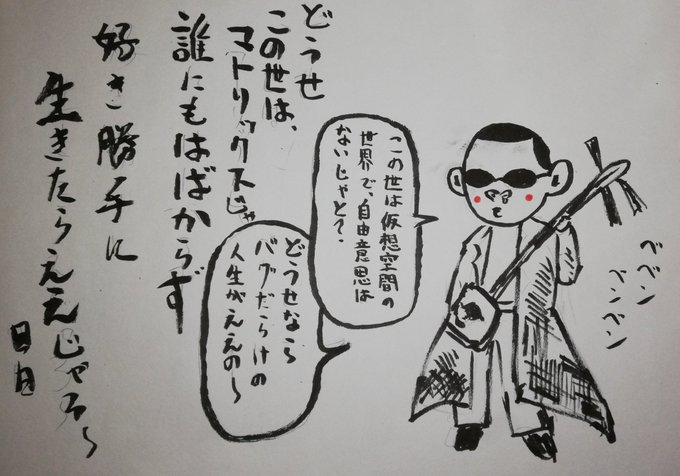 どうせ
この世は、
マトリックスじゃ
誰にもはばからず
好き勝手に
生きたらええじゃろ〜
日日
この世は仮想空間の
世界で、自由意思は
ないじゃと?
どうせなら
バグだらけの
人生がええの〜
ベベン
ベンベン